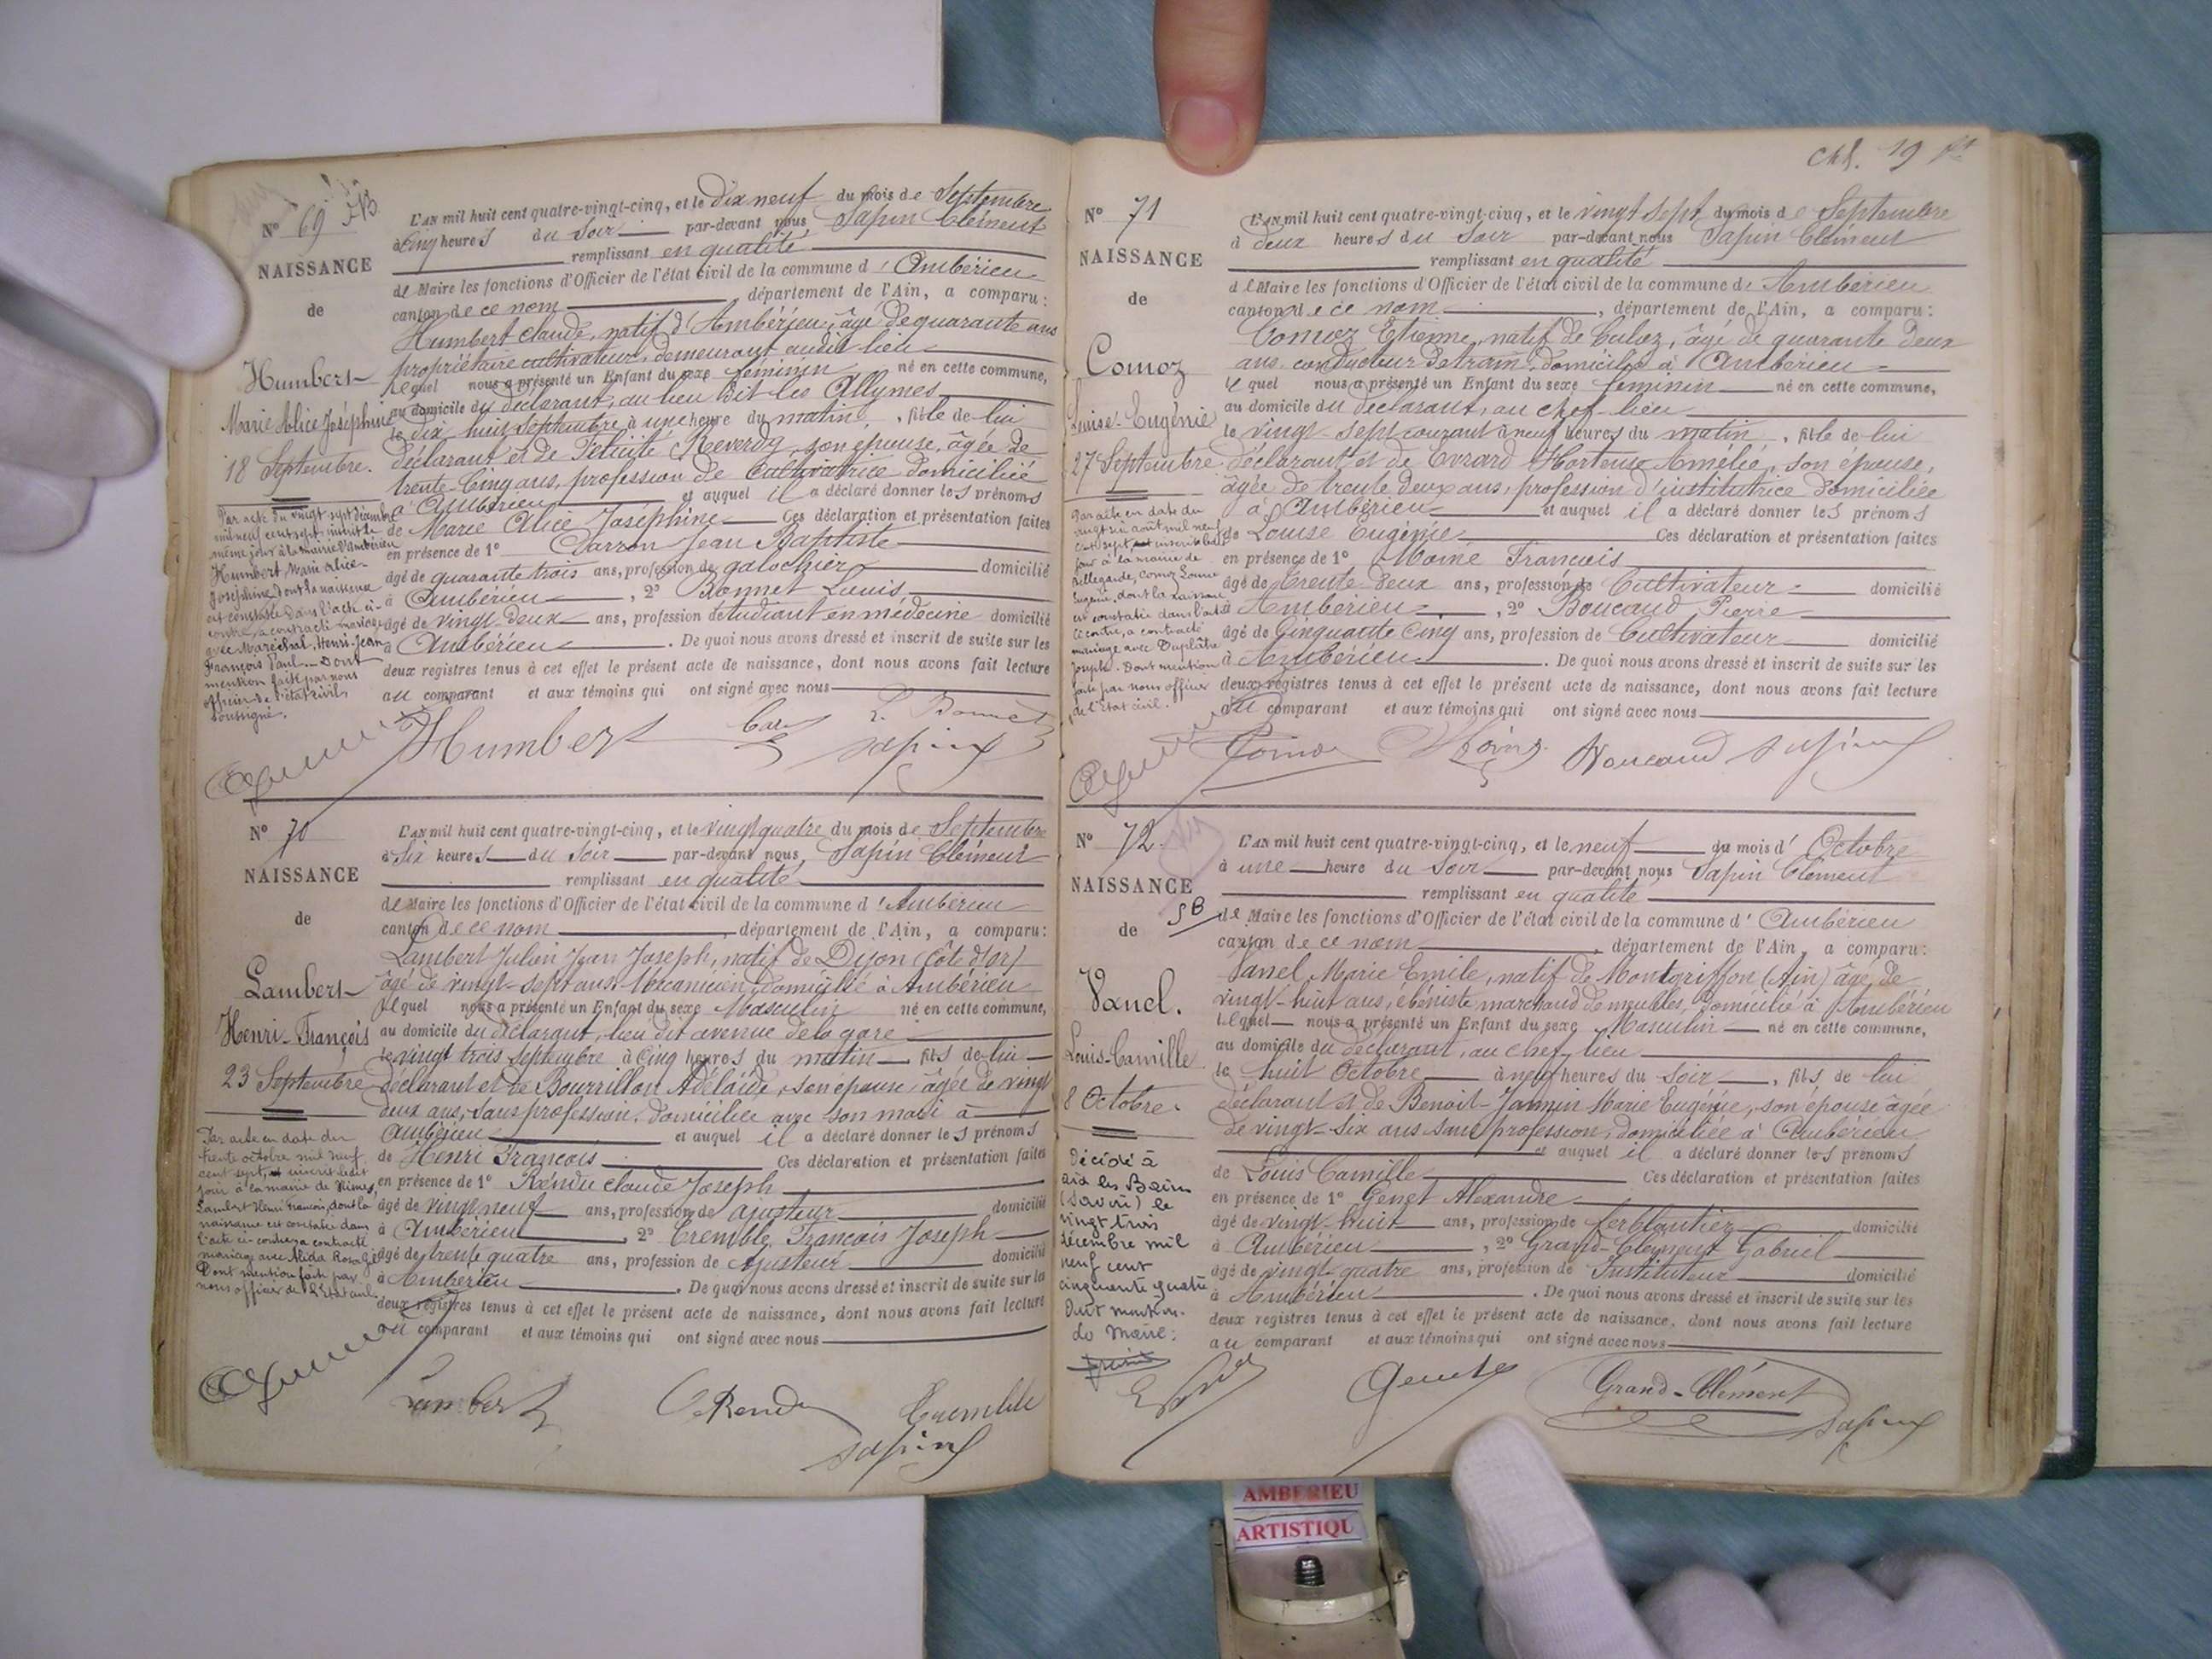 N° 69
NAISSANCE
de
Humbert
Marie Alice Joséphine
18 Septembre.
L'AN mil huit cent quatre-vingt-cinq, et le dix neuf du mois de Septembre
à Cinq heures du Soir par-devant nous Sapin Clément
remplissant en qualité
de Maire les fonctions d'Officier de l'état civil de la commune d'Ambérieu
canton de ce nom département de l'Ain, a comparu:
Humbert claude, natif d'Ambérieu, âgé de quarante ans
propriétaire cultivateur, demeurant audit lieu
Lequel nous a présenté un Enfant du sexe féminin né en cette commune,
au domicile du déclarant, au lieu dit les Allymes
le dix huit Septembre à une heure du matin, fille de lui
déclarant et de Félicité Reverdy, son épouse, âgée de
trente-Cinq ans, profession de Cultivatrice domiciliée
à Ambérieu et auquel il a déclaré donner les prénoms
de Marie Alice Joséphine Ces déclaration et présentation faites
en présence de 1° Carron Jean Baptiste
âgé de quarante trois ans, profession de galochier domicilié
à Ambérieu, 2° Bonnet Louis
âgé de vingt-deux ans, profession d'étudiant en médecine domicilié
à Ambérieu. De quoi nous avons dressé et inscrit de suite sur les
deux registres tenus à cet effet le présent acte de naissance, dont nous avons fait lecture
au comparant et aux témoins qui ont signé avec nous
Par acte du vingt-sept décembre
mil neuf cent sept inscrit le
même jour à la mairie d'Ambérieu
Humbert, Marie Alice-
Joséphine dont la naissance
est constatée dans l'acte ci-
contre, a contracté mariage
avec Maréchal, Henri-Jean
François Paul. Dont
mention faite par nous
officier de l'état civil
soussigné.
Humbert Car L. Bonnet
Sapin
N° 70
NAISSANCE
de
Lambert
Henri-François
23 Septembre
L'AN mil huit cent quatre-vingt-cinq, et le Vingt quatre du mois de Septembre
à Six heures du Soir par-devant nous, Sapin Clément
remplissant en qualité
de Maire les fonctions d'Officier de l'état civil de la commune d'Ambérieu
canton de ce nom, département de l'Ain, a comparu:
Lambert Julien Jean Joseph, natif de Dijon (Côte d'or)
âgé de vingt-sept ans Mécanicien, domicilié à Ambérieu
Lequel nous a présenté un Enfant du sexe Masculin né en cette commune,
au domicile du déclarant, lieu dit avenue de la gare
le vingt trois Septembre à Cinq heures du matin, fils de lui
déclarant et de Bourrillon Adélaïde, son épouse, âgée de vingt
deux ans, Sans profession, domiciliée avec son mari à
Ambérieu et auquel il a déclaré donner les prénoms
de Henri François Ces déclaration et présentation faites
en présence de 1° Rendu claude Joseph
âgé de vingt neuf ans, profession de ajusteur domicilié
à Ambérieu, 2° Tremble, François Joseph
âgé de trente quatre ans, profession de Ajusteur domicilié
à Ambérieu. De quoi nous avons dressé et inscrit de suite sur les
deux registres tenus à cet effet le présent acte de naissance, dont nous avons fait lecture
au comparant et aux témoins qui ont signé avec nous
Par acte en date du
trente octobre mil neuf
cent sept, inscrit ledit
jour à la mairie de Nîmes,
Lambert Henri François, dont la
naissance est constatée dans
l'acte ci-contre a contracté
mariage avec Alida Rosa
Dont mention faite par
nous officier de l'Etat civil.
Lambert C. Rendu Tremble
Sapin
Chl. 19
N° 71
NAISSANCE
de
Comoz
Louise-Eugénie
27 Septembre
L'AN mil huit cent quatre-vingt-cinq, et le vingt Sept du mois de Septembre
à deux heures du Soir par-devant nous Sapin Clément
remplissant en qualité
de Maire les fonctions d'Officier de l'état civil de la commune d'Ambérieu
canton de ce nom, département de l'Ain, a comparu:
Comoz Etienne, natif de Culoz, âgé de quarante deux
ans, conducteur de train, domicilié à Ambérieu
Lequel nous a présenté un Enfant du sexe féminin né en cette commune,
au domicile du déclarant, au chef-lieu
le vingt-sept courant à neuf heures du matin, fille de lui
déclarant et de Evrard Hortense Amélie, son épouse,
âgée de trente deux ans, profession d'institutrice domiciliée
à Ambérieu et auquel il a déclaré donner les prénoms
de Louise Eugénie Ces déclaration et présentation faites
en présence de 1° Moine François
âgé de trente deux ans, profession de Cultivateur domicilié
à Ambérieu, 2° Boucaud Pierre
âgé de Cinquante Cinq ans, profession de Cultivateur domicilié
à Ambérieu. De quoi nous avons dressé et inscrit de suite sur les
deux registres tenus à cet effet le présent acte de naissance, dont nous avons fait lecture
au comparant et aux témoins qui ont signé avec nous
Par acte en date du
vingt six août mil neuf
cent sept inscrit ledit
jour à la mairie de
Bellegarde, Comoz Louise
Eugénie, dont la naissance
est constatée dans l'acte
ci contre, a contracté
mariage avec Duplâtre
Joseph. Dont mention
faite par nous officier
de l'Etat civil.
Comoz Moine Boucaud Sapin
N° 72
NAISSANCE
de
SB
Vanel.
Louis-Camille
8 Octobre.
L'AN mil huit cent quatre-vingt-cinq, et le neuf du mois d'Octobre
à une heure du Soir par-devant nous Sapin Clément
remplissant en qualité
de Maire les fonctions d'Officier de l'état civil de la commune d'Ambérieu
canton de ce nom, département de l'Ain, a comparu:
Vanel Marie Emile, natif de Montgriffon (Ain) âgé de
vingt-huit ans, ébéniste marchand de meubles, domicilié à Ambérieu
Lequel nous a présenté un Enfant du sexe Masculin né en cette commune,
au domicile du déclarant, au chef-lieu
le huit Octobre à neuf heures du Soir, fils de lui
déclarant et de Benoit-Jannin Marie Eugénie, son épouse âgée
de vingt-six ans sans profession, domiciliée à Ambérieu
et auquel il a déclaré donner les prénoms
de Louis Camille Ces déclaration et présentation faites
en présence de 1° Genet Alexandre
âgé de vingt-huit ans, profession de ferblantier domicilié
à Ambérieu, 2° Grand-Clément Gabriel
âgé de vingt-quatre ans, profession de Instituteur domicilié
à Ambérieu. De quoi nous avons dressé et inscrit de suite sur les
deux registres tenus à cet effet le présent acte de naissance, dont nous avons fait lecture
au comparant et aux témoins qui ont signé avec nous
Décédé à
aix les Bains
(Savoie) le
vingt trois
décembre mil
neuf cent
cinquante quatre
Dont mention.
Le Maire:
Grand-Clément
Sapin
AMBERIEU
ARTISTIQU